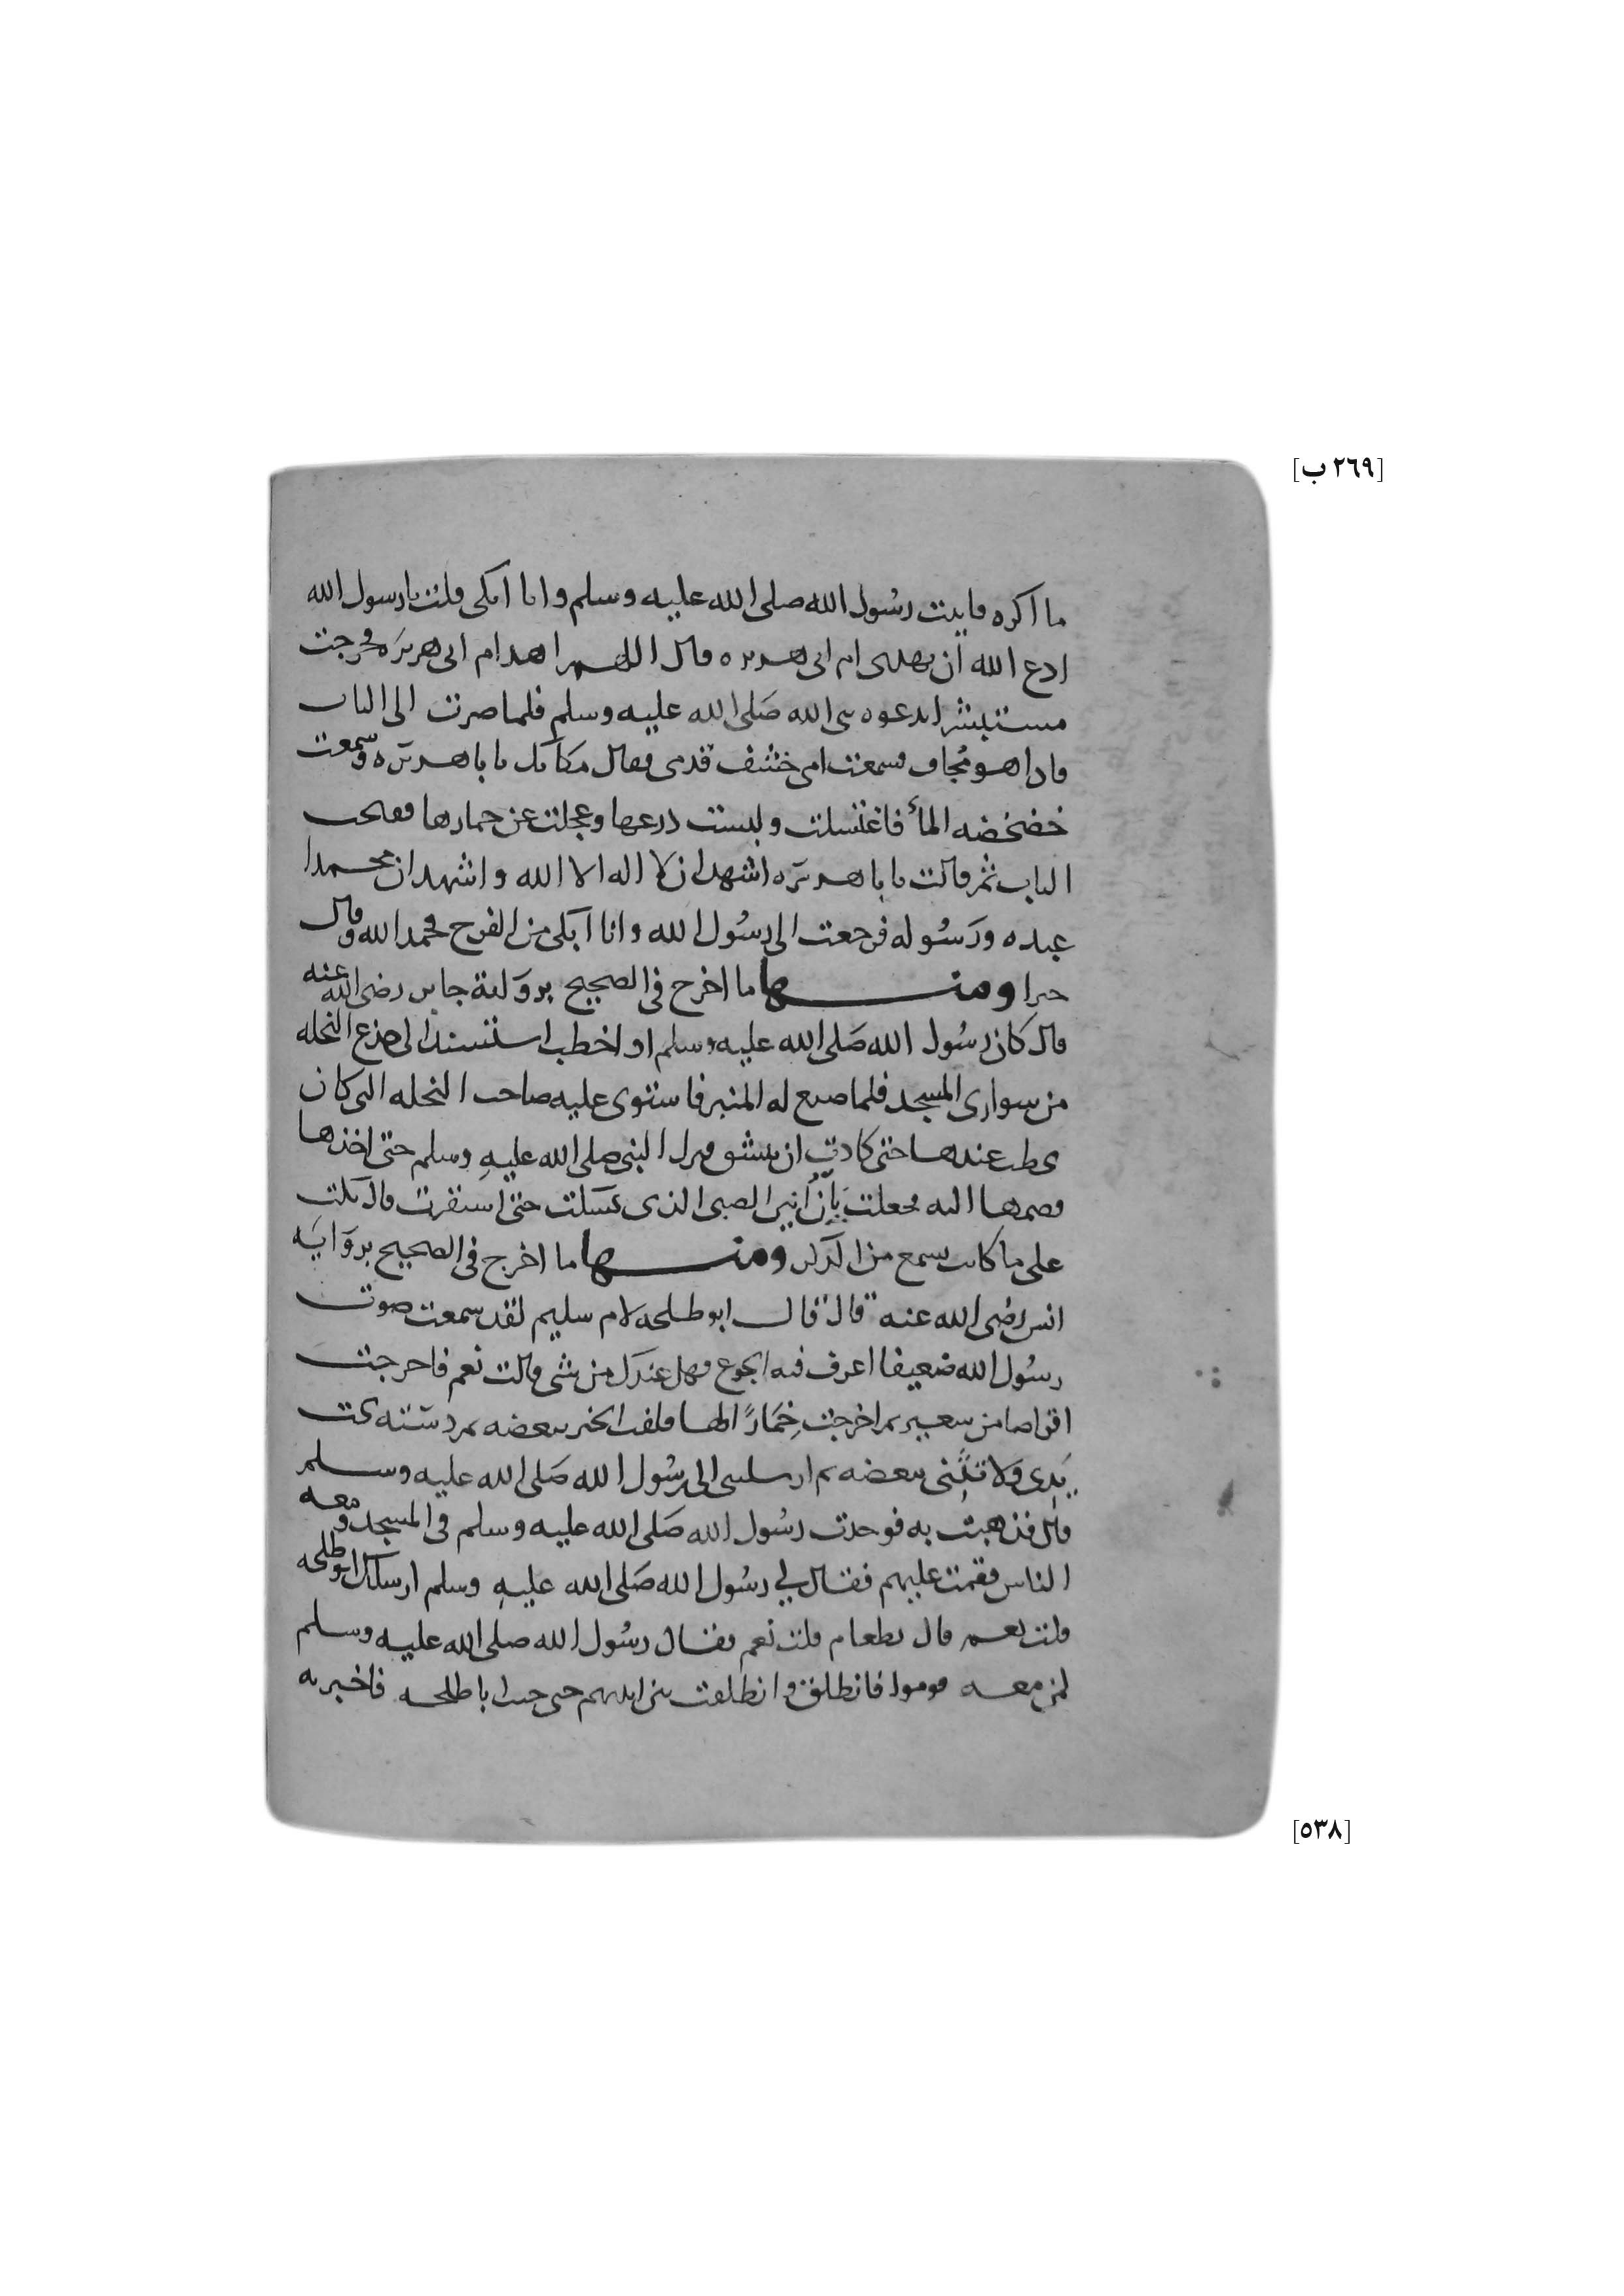 [٢٦٩ ب]
ما اكره فاتيت رسُول الله صلى الله عليه وسلم وانا ابكى قلت يا رسول الله
ادع الله ان يهدى ام ابى هريره فقال اللهم اهد ام ابى هريرَه فخرجت
مستبشرا بدعوه نبى الله صَلى الله عليه وسلم فلما صرت الى الباب
فاذا هو مُجاف فسمعت امى خشف قدمى فقال مكانك يابا هريرَه وسمعت
خضخضه المأ فاغتسلت ولبست درعها وعجلت عن خمارها ففتحت
الباب ثم قالت يابا هريرَه اشهد ان لا اله الا الله واشهد ان محمدا
عبده ورَسُوله فرجعت الى رسُول الله وانا ابكى من الفرح فحمد الله وقال
خيرا ومنها ما اخرج في الصحيح بروَاية جابر رضى الله عنه
قال كان رسُول الله صَلى الله عليه وسلم اذا خطب استسند الى جذع النخله
من سوارى المسجد فلما صنع له المنبر فاستوى عليه صاحت النخله التى كان
يخطب عندها حتى كادت ان تنشق فنزل النبى صلى الله عليهِ وسلم حتى اخذها
فضمها اليه فجعلت تَاِنُّ انين الصبى الذى تسَكت حتى استقرت قال بكت
على ما كانت تسمع من الذكر ومنها ما اخرج في الصحيح بروَايَه
انس رضى الله عنه قال قال ابو طلحه لام سليم لقد سمعت صوت
رسُول الله ضعيفا اعرف فيه الجوع فهل عندك من شى قالت نعم فاخرجت
اقراصا من شعير ثم اخرجت خِمَارًا لها فلفت الخبز ببعضه ثم دسّته تحت
يَدى وَلاثَتْنى ببعضه ثم ارسلتنى الى رسُول الله صَلى الله عليه وسلم
قال فذهبت به فوجدت رسُول الله صَلى الله عليه وسلم فى المسجد ومعه
الناس فقمت عليهم فقال لي رسُول الله صَلى الله عليهِ وسلم ارسلك ابو طلحه
قلت نعم قال بطعام قلت نعم فقال رسُول الله صلى الله عليه وسلم
لمن معه قوموا فانطلق وانطلقت بين ايديهم حتى جيت ابا طلحه فاخبرته
[٥٣٨]